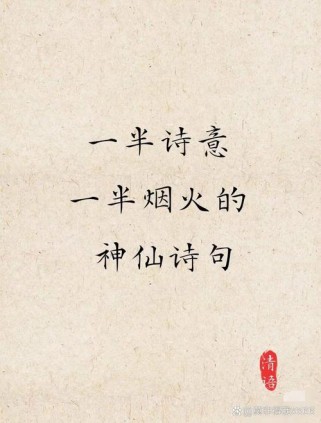 一半诗意
一半烟火的
神仙诗句
清语